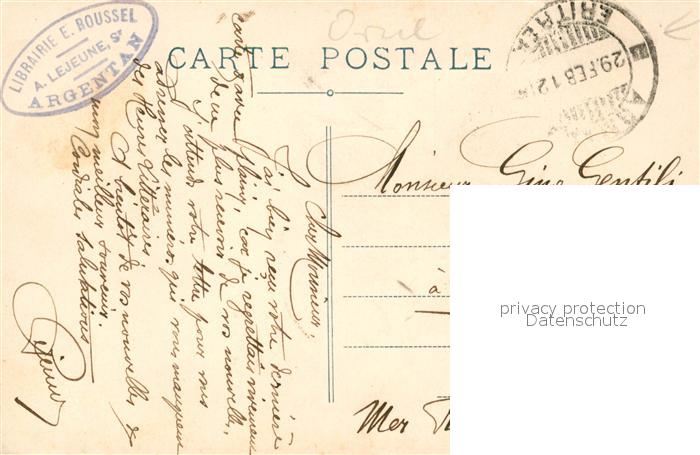 LIBRAIRIE E. ROUSSEL
A. LEJEUNE, Sr
ARGENTAN
Orne
CARTE POSTALE
ERITREA
29.FEB.12
Cher Monsieur,
J'ai bien reçu votre dernière
carte avec plaisir, car je regrettais vivement
de ne plus recevoir de vos nouvelles.
J'attends votre lettre pour vous
abonner les numéros qui vous manquent
des Heures Littéraires
A bientôt de vos nouvelles &
mon meilleur souvenir.
Cordiales salutations
Lejeune
Monsieur Gino Gentili
à
Mer
privacy protection
Datenschutz